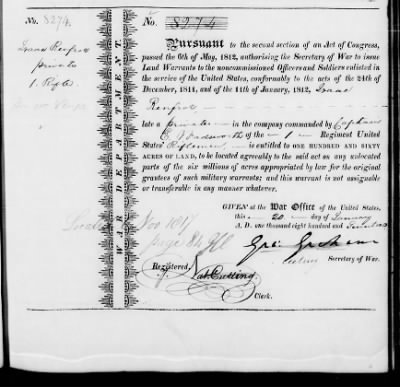 No. 8274
Isaac Renfroe
private
1. Rifle
WAR DEPARTMENT.
No. 8274
Pursuant to the second section of an Act of Congress,
passed the 6th of May, 1812, authorising the Secretary of War to issue
Land Warrants to the noncommissioned Officers and Soldiers enlisted in
the service of the United States, conformably to the acts of the 24th of
December, 1811, and of the 11th of January, 1812, Isaac
Renfroe
late a private in the company commanded by Captain
E. Wadsworth of the 1 Regiment United
States' Riflemen is entitled to ONE HUNDRED AND SIXTY
ACRES OF LAND, to be located agreeably to the said act on any unlocated
parts of the six millions of acres appropriated by law for the original
grantees of such military warrants; and this warrant is not assignable
or transferable in any manner whatever.
GIVEN at the War Office of the United States,
this 20 day of January
A. D. one thousand eight hundred and
Nov 1817
page
Geo: Graham
Secretary of War.
Registered,
Nat. Cutting
Clerk.